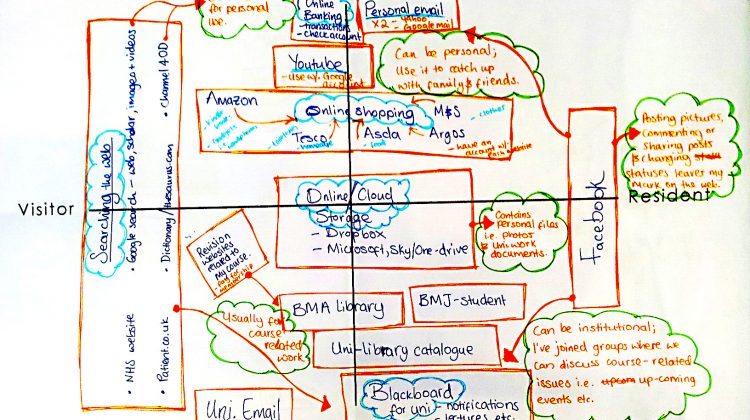 for personal
use.
Online
Banking
- transactions
- check account
Personal email
x2 - Yahoo
- Google mail
Can be personal;
Use it to catch up
with family & friends.
Youtube
- use w. Google
account
Searching the web
• Google search - web, scholar, images + videos
• Channel 4OD
• Dictionary/thesaurus.com
• NHS website
• Patient.co.uk
Amazon
Online shopping
M&S
- clothes
Tesco
Asda
- food
Argos
- have an
account w.
each website
Posting pictures,
commenting or
sharing posts
& changing
statuses leaves my
mark on the web.
Facebook
Visitor
Resident
Online/Cloud
Storage
- Dropbox
- Microsoft, Sky/One-drive
Contains
personal files
i.e. photos
& Uni work
documents.
Revision
websites
related to
my course
- paid for
membership
BMA library
BMJ-student
Usually for
course
related
work
Uni-library catalogue
Can be institutional;
I've joined groups where we
can discuss course-related
issues i.e. up-coming
events etc.
Uni. Email
Blackboard
for uni - notifications
- lectures etc.